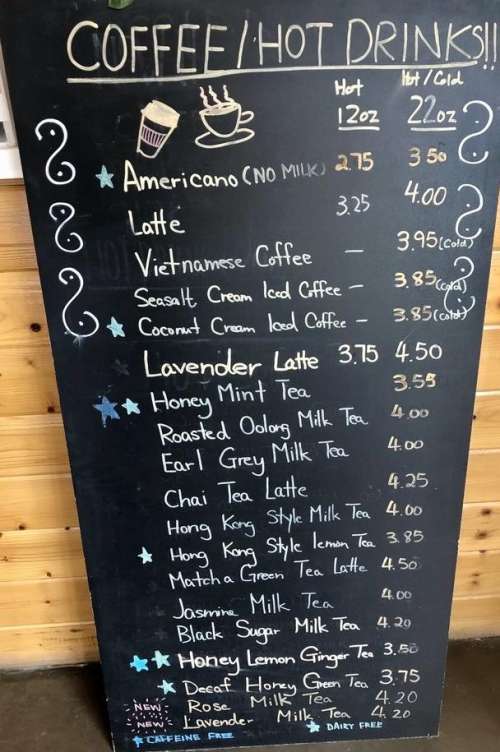 COFFEE/HOT DRINKS!!
Hot Hot/Cold
12oz 22oz
Americano (NO MILK) 2.75 3.50
Latte 3.25 4.00
Vietnamese Coffee — 3.95 (Cold)
Seasalt Cream Iced Coffee — 3.85 (Cold)
Coconut Cream Iced Coffee — 3.85 (Cold)
Lavender Latte 3.75 4.50
Honey Mint Tea 3.55
Roasted Oolong Milk Tea 4.00
Earl Grey Milk Tea 4.00
Chai Tea Latte 4.25
Hong Kong Style Milk Tea 4.00
Hong Kong Style lemon Tea 3.85
Matcha Green Tea Latte 4.50
Jasmine Milk Tea 4.00
Black Sugar Milk Tea 4.20
Honey Lemon Ginger Tea 3.50
Decaf Honey Green Tea 3.75
NEW Rose Milk Tea 4.20
NEW Lavender Milk Tea 4.20
CAFFEINE FREE DAIRY FREE